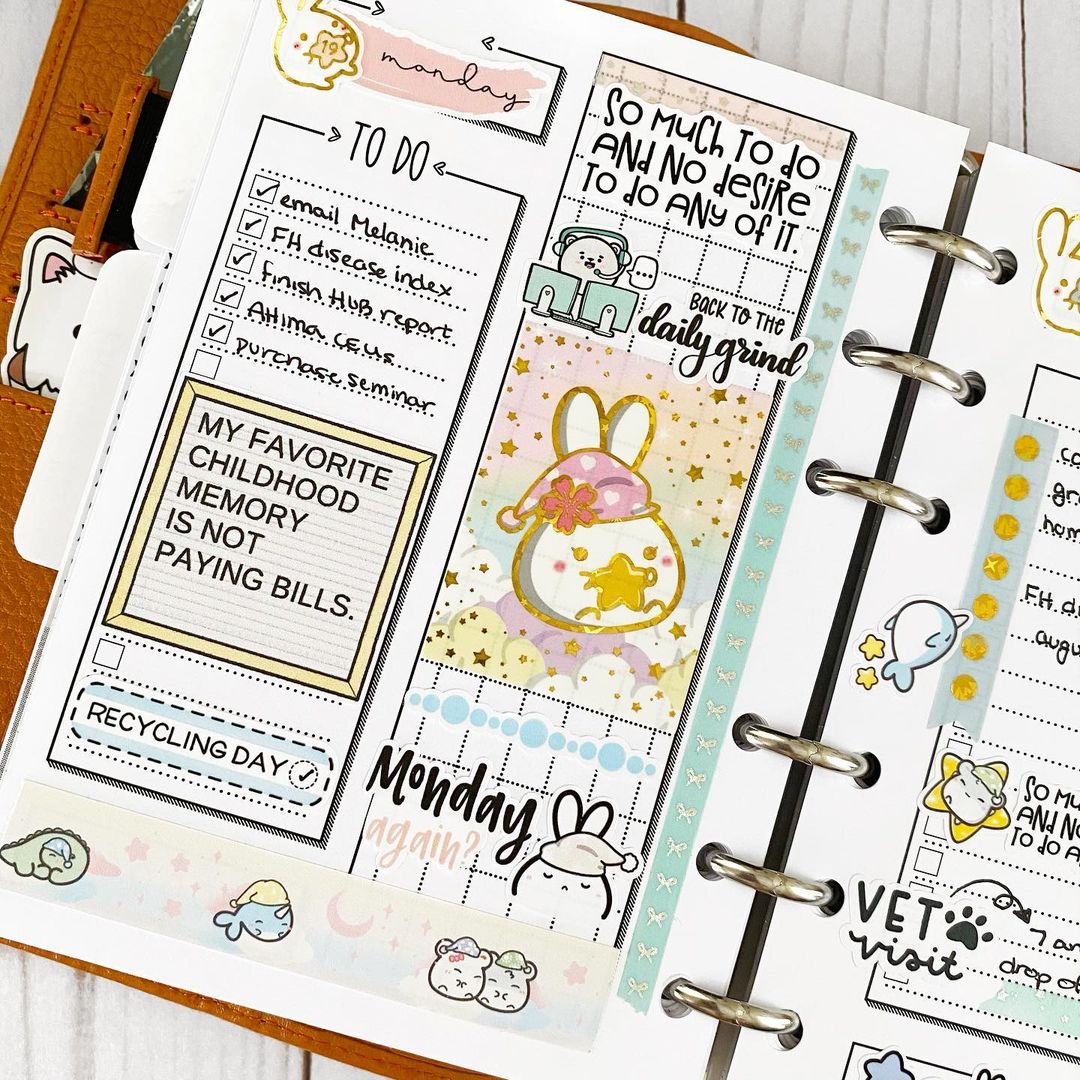 19
monday
TO DO
email Melanie
FH disease index
finish HUB report
AHIMA CEUs
purchase seminar
MY FAVORITE
CHILDHOOD
MEMORY
IS NOT
PAYING BILLS.
RECYCLING DAY
SO MUCH TO DO
AND NO DESIRE
TO DO ANY OF IT.
BACK TO THE
daily grind
Monday
again?
FH di
augu
SO MU
AND NO
TO DO A
VET
visit
7 am
drop of